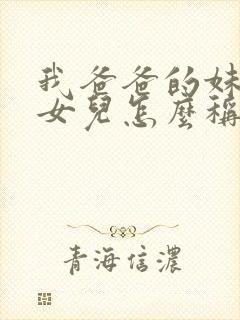 我爸爸的妹
女兒怎麼稱
青海信濃